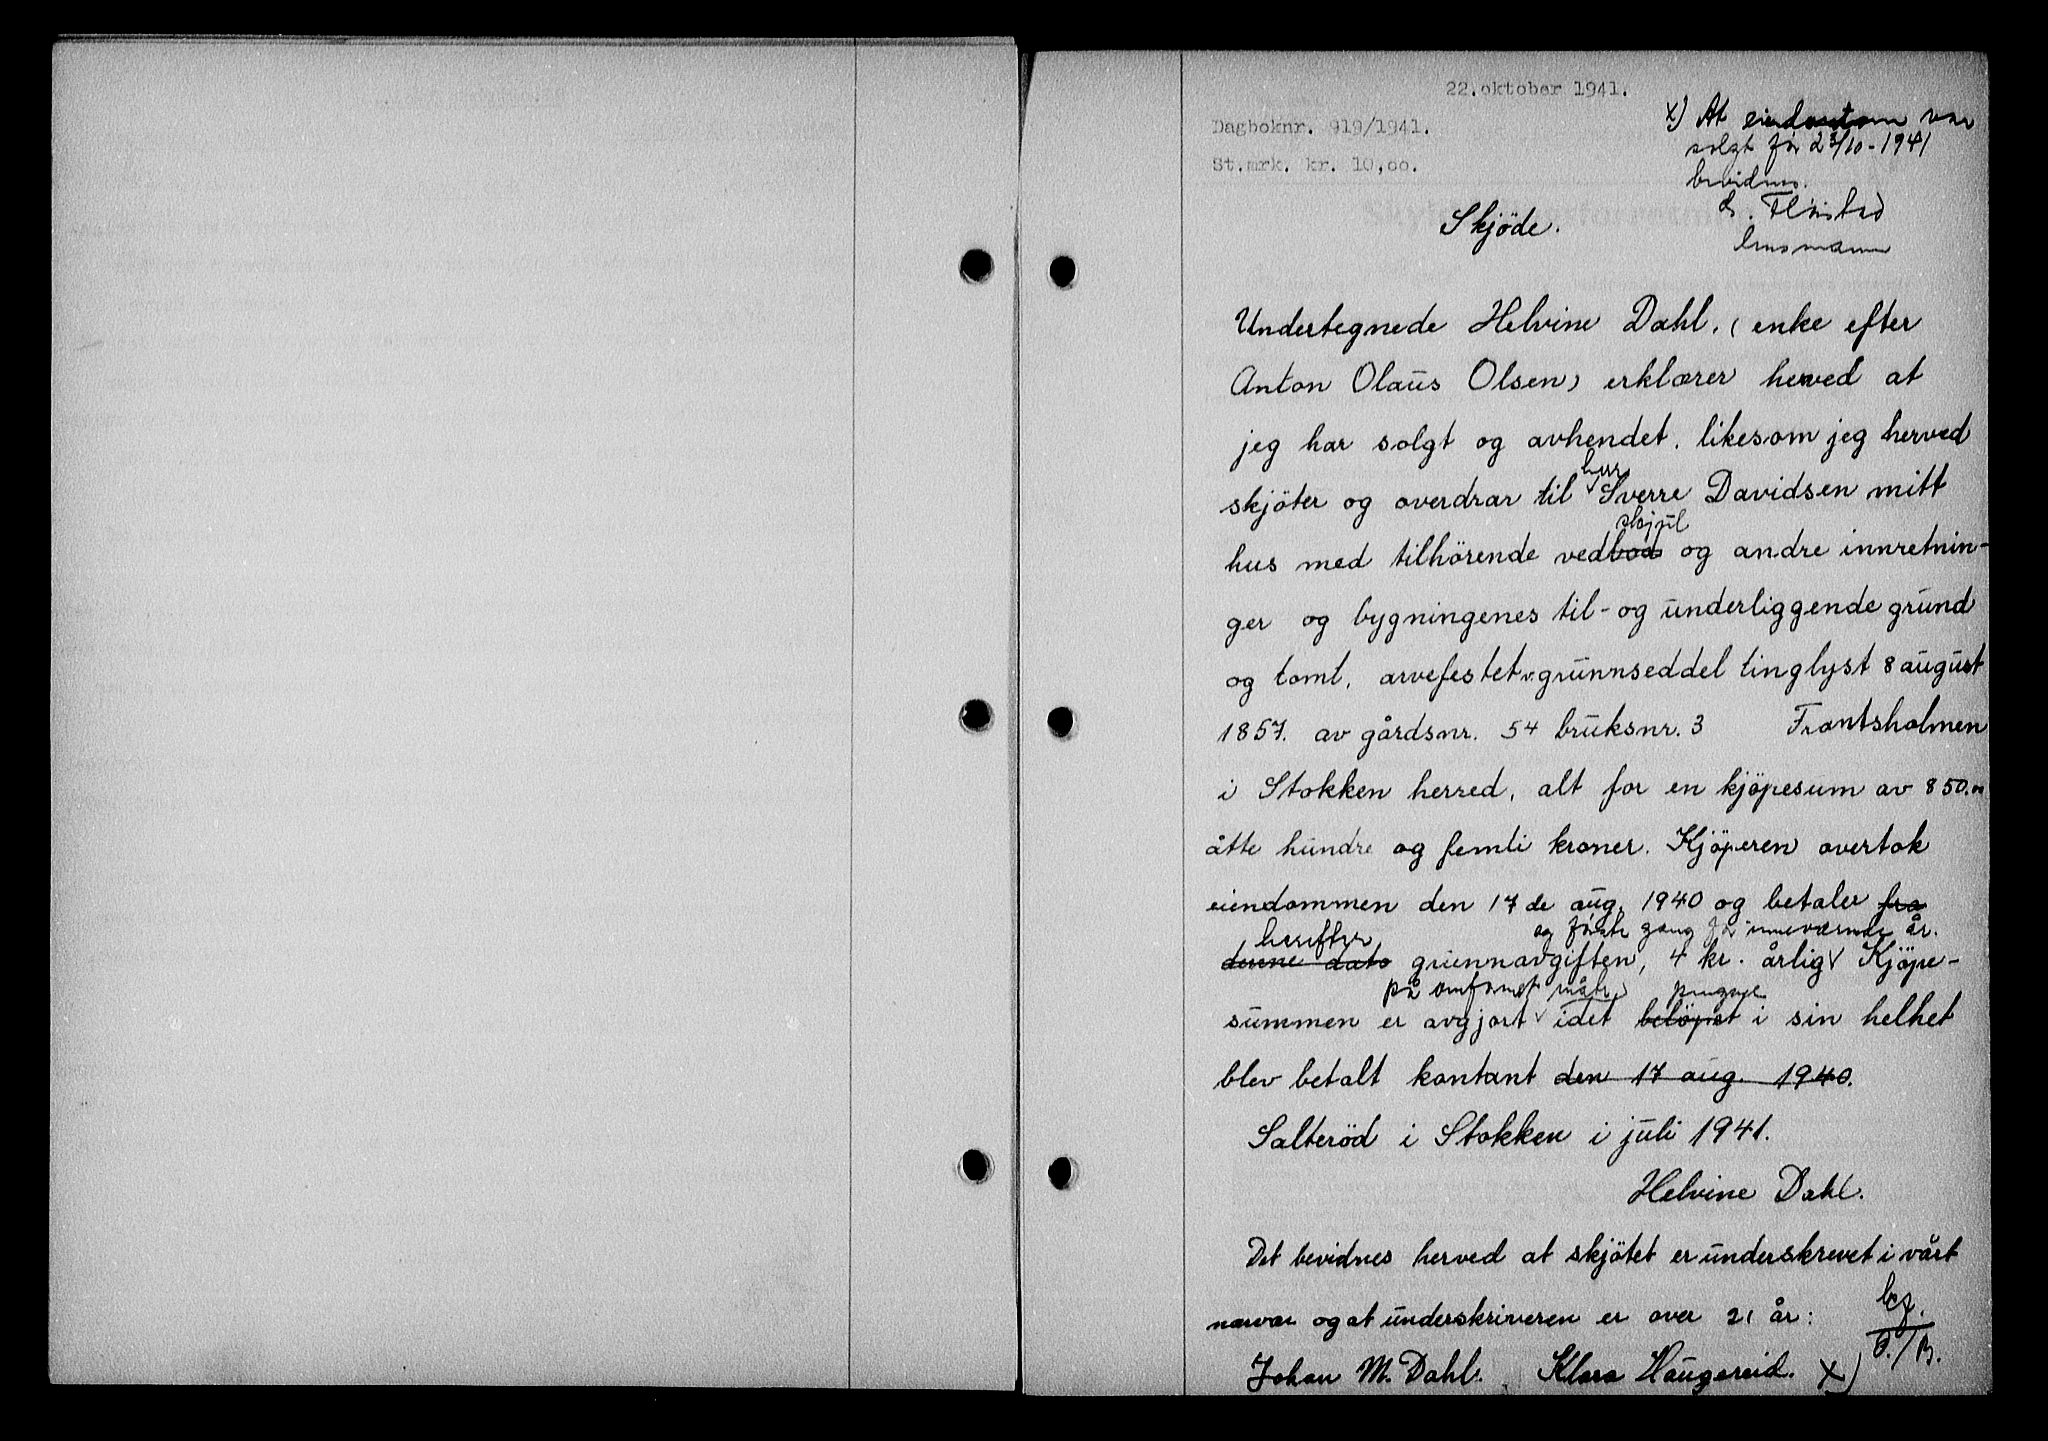 22.oktober 1941.
Dagboknr. 919/1941.
St.mrk. kr. 10,oo.
x) At eiendommen var
solgt før 23/10-1941
bevidnes.
lensmann
Skjöde.
Undertegnede Helvine Dahl, (enke efter
Anton Olaus Olsen) erklærer herved at
jeg har solgt og avhendet, likesom jeg herved
herr
skjöter og overdrar til Sverre Davidsen mitt
skjul
hus med tilhörende vedbod og andre innretnin-
ger og bygningenes til- og underliggende grund
og tomt, arvefestet v. grunnseddel tinglyst 8 august
1857. av gårdsnr. 54 bruksnr. 3 Frantsholmen
i Stokken herred, alt for en kjöpesum av 850.00
åtte hundre og femti kroner. Kjöperen overtok
eiendommen den 17 de aug. 1940 og betaler fra
herefter og første gang for inneværende år.
denne dato grunnavgiften, 4 kr. årlig Kjöpe-
på omforenet måte pengene
summen er avgjort idet belöpet i sin helhet
blev betalt kontant den 17 aug. 1940.
Salteröd i Stokken i juli 1941.
Helvine Dahl.
Det bevidnes herved at skjötet er underskrevet i vårt
nærvær og at underskriveren er over 21 år:
Johan M. Dahl. Klara Haugereid. x)